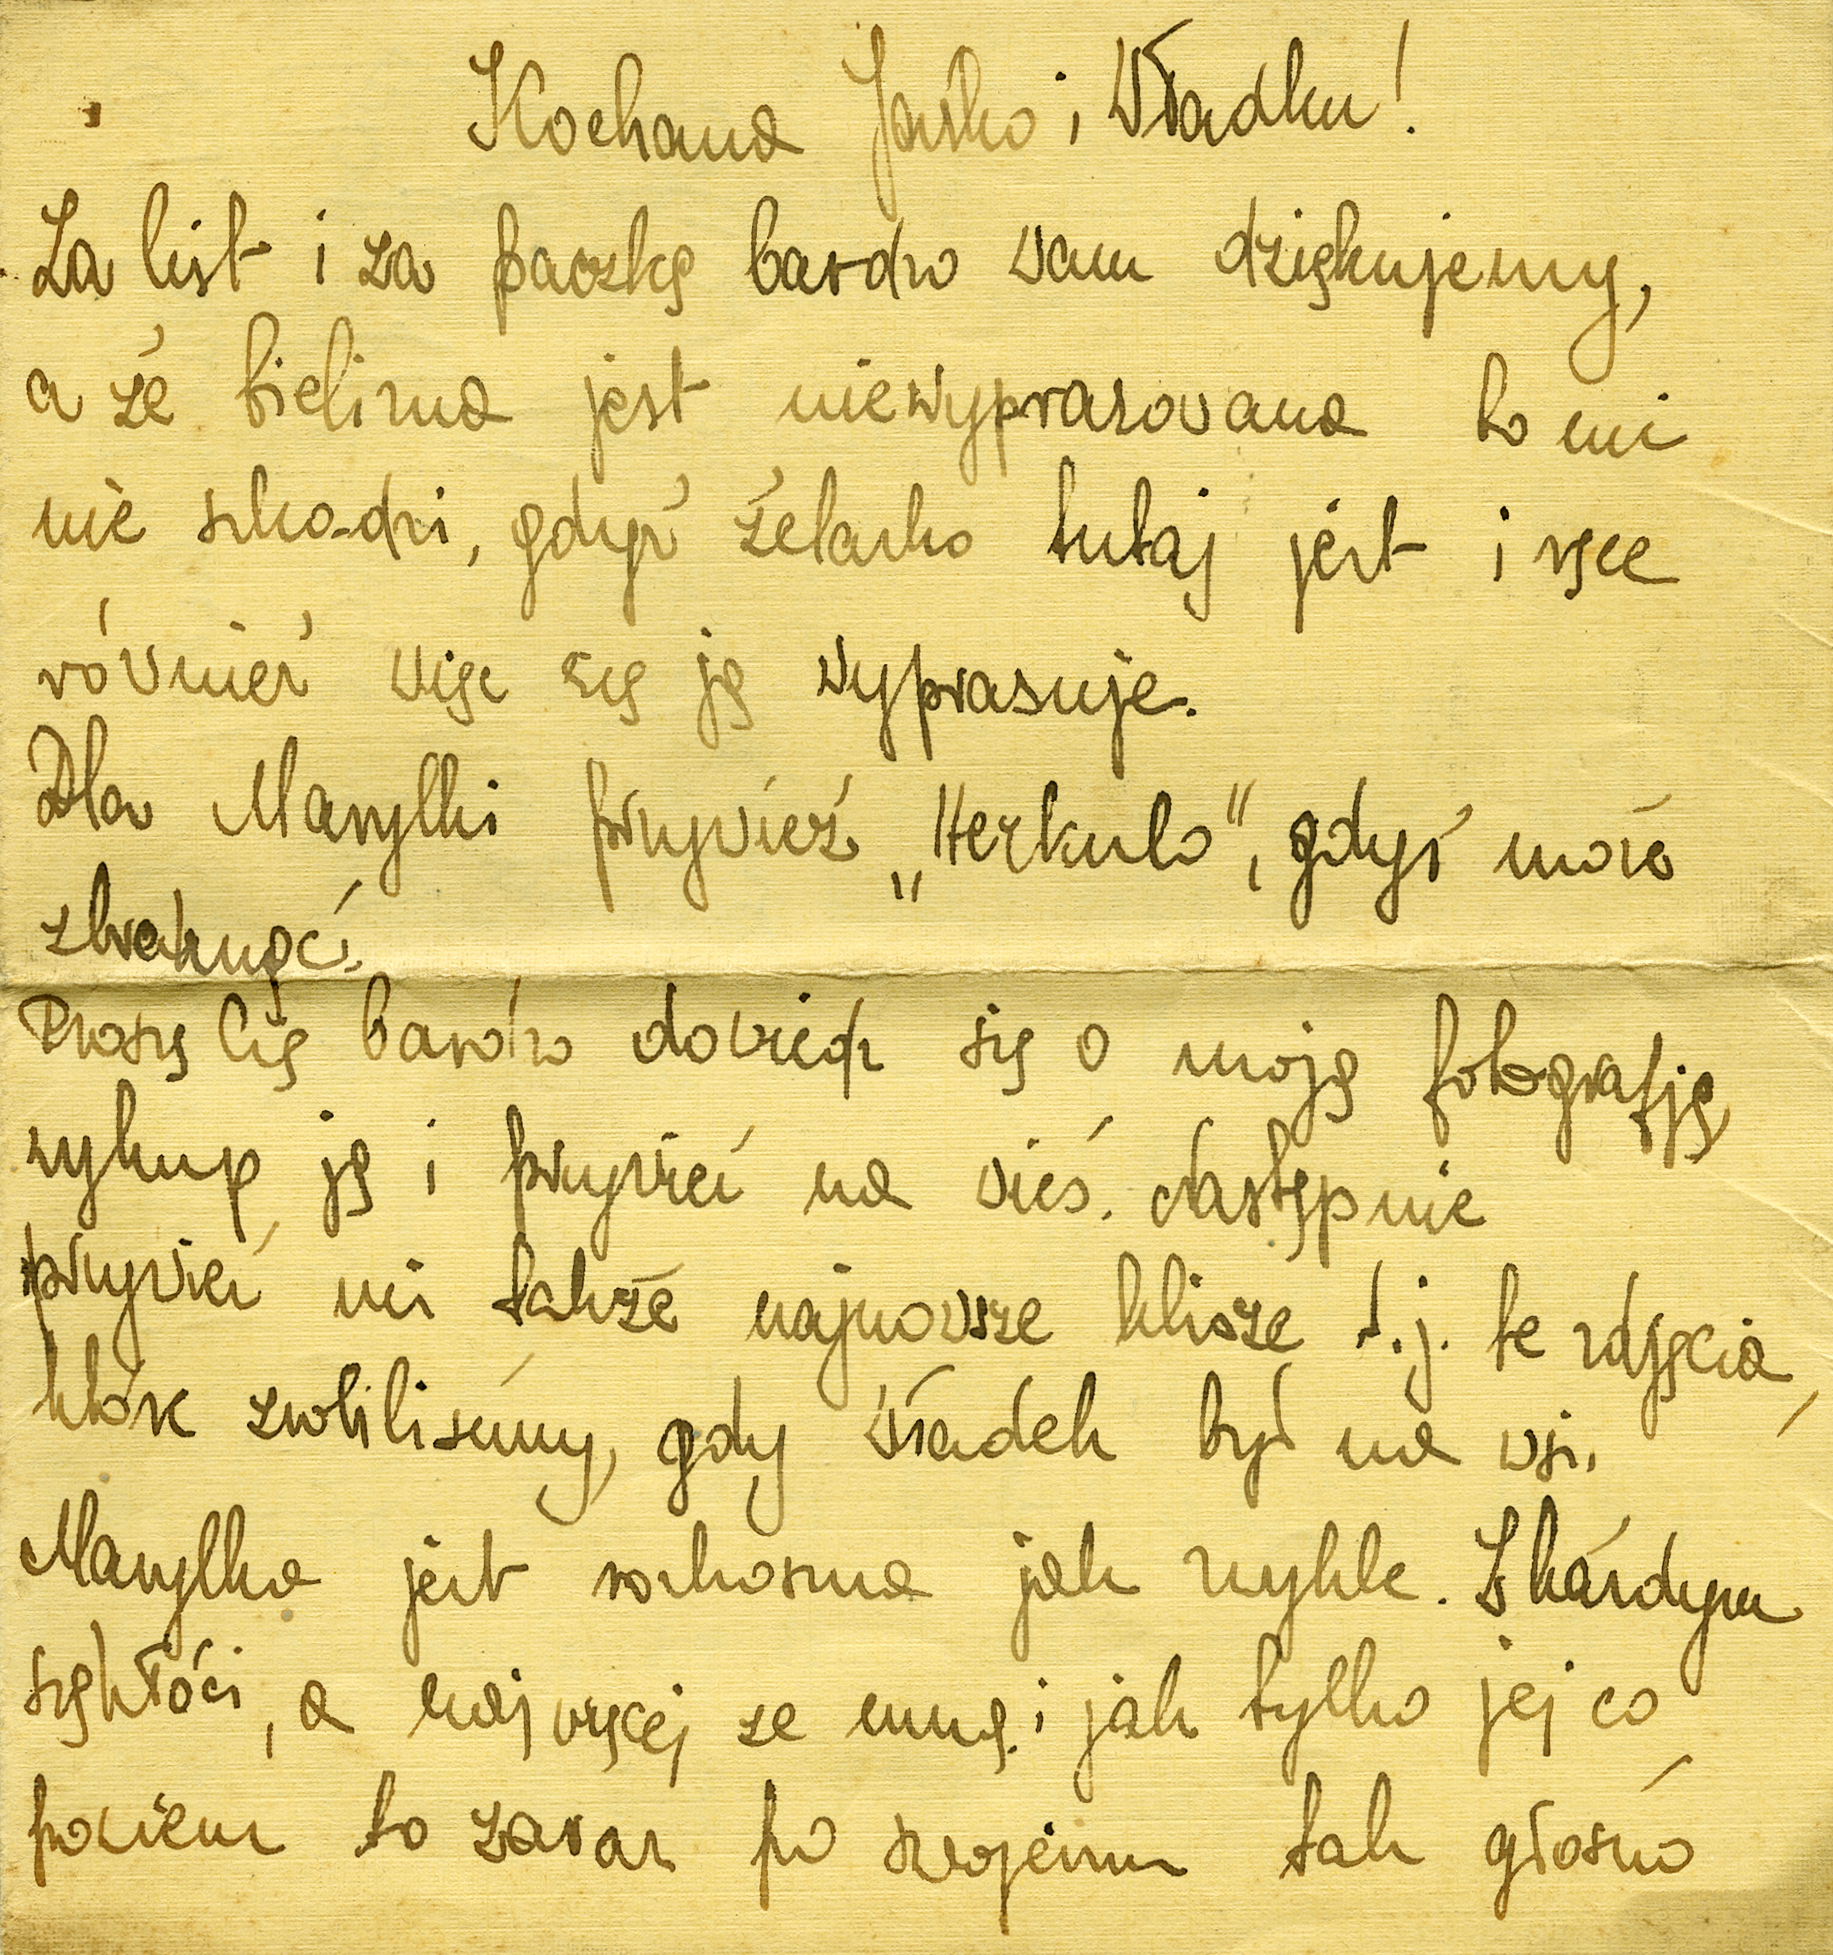 Kochana Jaśko i Władku!
Za list i za paczkę bardzo wam dziękujemy,
a że bielizna jest niewyprasowana to mi
nie szkodzi, gdyż żelazko tutaj jest i ręce
również więc się ją wyprasuje.
Dla Marylki przywieź „Herkulo", gdyż może
zbraknąć.
Proszę Cię bardzo dowiedz się o moją fotografję,
wykup ją i przywieź na wieś. Następnie
przywieź mi także najnowsze klisze t.j. te zdjęcia,
które zrobiliśmy, gdy Władek był na wsi.
Marylka jest rozkoszna jak zwykle. Z każdym
się kłóci, a najwięcej ze mną i jak tylko jej co
powiem to zaraz po swojemu tak głośno